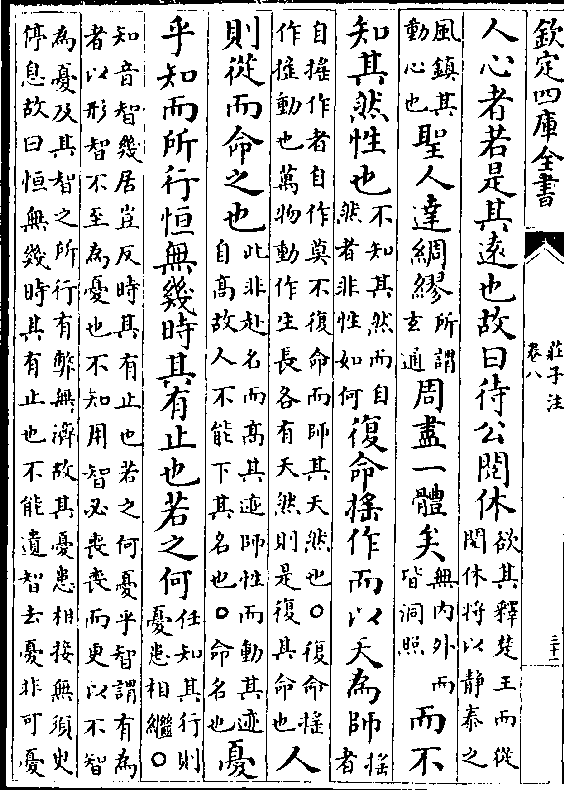 欽定四庫全書
莊子注
卷八
三十一
人心者若是其遠也故曰待公閱休
欲其釋楚王而從
閱休將以靜泰之
風鎮其
動心也
聖人達綢繆
所謂
玄通
周盡一體矣
無内外而
皆洞照
而不
知其然性也
不知其然而自
然者非性如何
復命搖作而以天為師
搖
者
自搖作者自作莫不復命而師其天然也○復命搖
作搖動也萬物動作生長各有天然則是復其命也
人
則從而命之也
此非赴名而高其迹師性而動其迹
自高故人不能下其名也○命名也
憂
乎知而所行恒無幾時其有止也若之何
任知其行則
憂患相繼○
知音智幾居豈反時其有止也若之何憂乎智謂有為
者以形智不至為憂也不知用智必喪喪而更以不智
為憂及其智之所行有弊無濟故其憂患相接無須臾
停息故曰恒無幾時其有止也不能遺智去憂非可憂